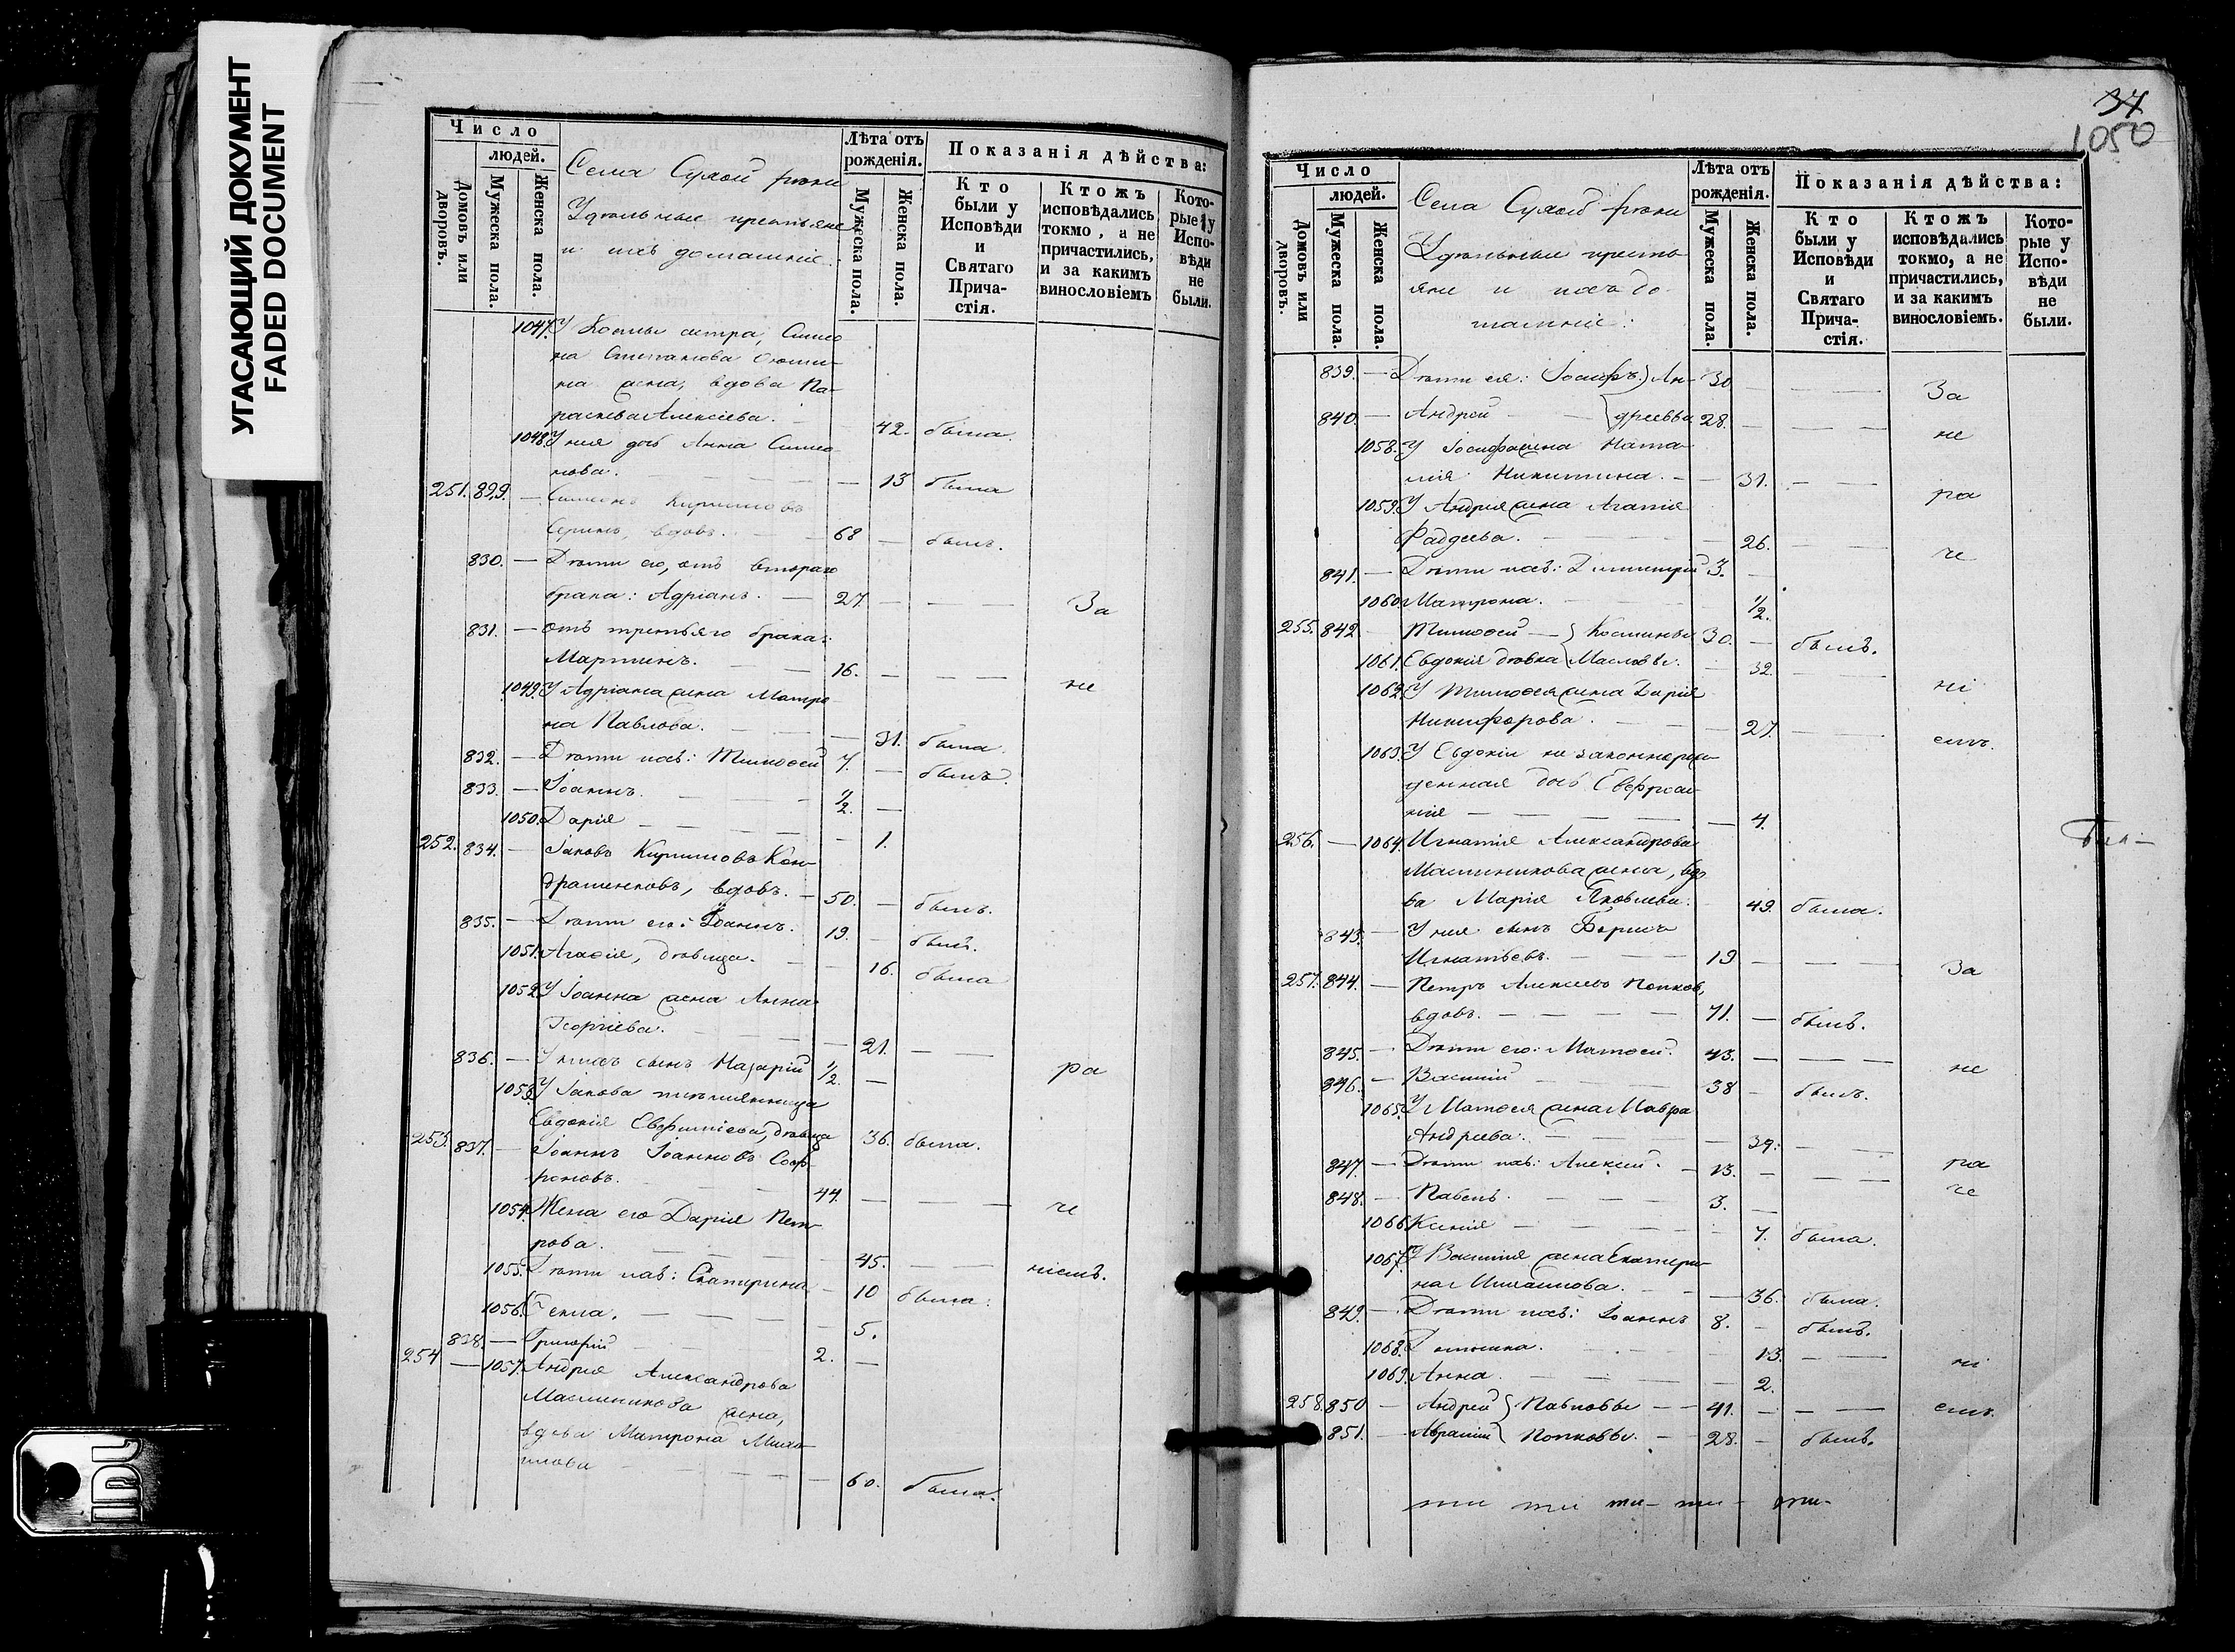 УГАСАЮЩИЙ ДОКУМЕНТ
FADED DOCUMENT
Число
людей.
Домовъ или дворовъ.
Мужеска пола.
Женска пола.
Села Сухой рѣчки
Удѣльные крестьяне
и ихъ домашніе.
Лѣта отъ рожденія.
Мужеска пола.
Женска пола.
Показанія дѣйства:
Кто были у Исповѣди и Святаго Прича-стія.
Ктожъ исповѣдались токмо, а не причастились, и за какимъ винословіемъ
Кото-рые у Испо-вѣди не были.
1047. У Космы сестра, Симео
на Степанова
жена, вдова Па-
раскева Алексіева. 42. была.
1048. У нея дочь Анна Симео
нова. — 13 была
251. 829. — Симеонъ Кириловъ
вдовъ. 68 — былъ.
830. — Дѣти его, отъ втораго
брака: Адріанъ. — 27 — — — За
831. — отъ третьяго брака:
Мартинъ. — 16. — — — не
1049. У Адріана жена Матро
на Павлова. — 31. была.
832. — Дѣти ихъ: Тимоѳей 7. — былъ.
833. — Іоаннъ. — 1/2. —
1050. Дарія — — 1.
252. 834. — Іаковъ Кириловъ Кон-
драшенковъ, вдовъ. — 50. — былъ.
835. — Дѣти его: Іоаннъ. 19. — былъ.
1051. Агаѳія, дѣвица. — 16. была
1052. У Іоанна жена Анна
Георгіева. — 21. — — ра
836. — У нихъ сынъ Назарій 1/2. —
1053. У Іакова племянница
Евдокія Евфиміева, дѣвица 36. была.
253. 837. — Іоаннъ Іоанновъ Соф-
роновъ. — 44. — — — че
1054. Жена его Дарія Пет-
рова. — 45. — ніемъ.
1055. Дѣти ихъ: Екатерина — 10 была.
1056. Ѳекла. — 5.
838. — Григорій — 2. —
254 — 1057. Андрея Александрова
Масленикова жена,
вдова Матрона Миха-
илова — 60. была.
37
1050
Число
людей.
Домовъ или дворовъ.
Мужеска пола.
Женска пола.
Села Сухой рѣчки
Удѣльные кресть-
яне и ихъ до-
машніе:
Лѣта отъ рожденія.
Мужеска пола.
Женска пола.
Показанія дѣйства:
Кто были у Исповѣди и Святаго Прича-стія.
Ктожъ исповѣдались токмо, а не причастились, и за какимъ винословіемъ.
Кото-рые у Испо-вѣди не были.
839. — Дѣти ея: Іосифъ } Ан- 30 — — — За
840. — Андрей — дреевы 28. — — — не
1058. У Іосифа жена Ната-
лія Никитина. — 31. — — ра
1059. У Андрея жена Агапія
Фаддеева. — 26. — — че
841. — Дѣти ихъ: Димитрій 3. —
1060. Матрона. — 1/2.
255. 842 — Тимоѳей — } Космины 30. — былъ.
1061. Евдокія дѣвка Масловы. — 32. — — ні
1062. У Тимоѳея жена Дарія
Никифорова. — 27. — — емъ.
1063. У Евдокіи незаконнорож-
денная дочь Евфроси-
нія — 4.
256. — 1064. Игнатія Александрова
Масленикова жена, вдо
ва Марія Яковлева. 49. была.
843. — У нея сынъ Борисъ
Игнатьевъ. — 19 — — — За
257. 844. — Петръ Алексіевъ Попковъ,
вдовъ. — 71. — былъ.
845. — Дѣти его: Матѳей. 43. — — — не
846. — Василій — 38 — былъ.
1065. У Матѳея жена Мавра
Андреева. — 39. — ра
847. — Дѣти ихъ: Алексій. — 13. — — — че
848. — Павелъ. — 3. —
1066. Ксенія — 7. была.
1067. У Василія жена Екатери-
на — 36. была.
849. — Дѣти ихъ: Іоаннъ 8. — былъ.
1068. 13. — — ні
1069. Анна. — 2.
258. 850 — Андрей } Павловы — 41. — — — емъ.
851. — Аврамій Попковы. — 28. — былъ.